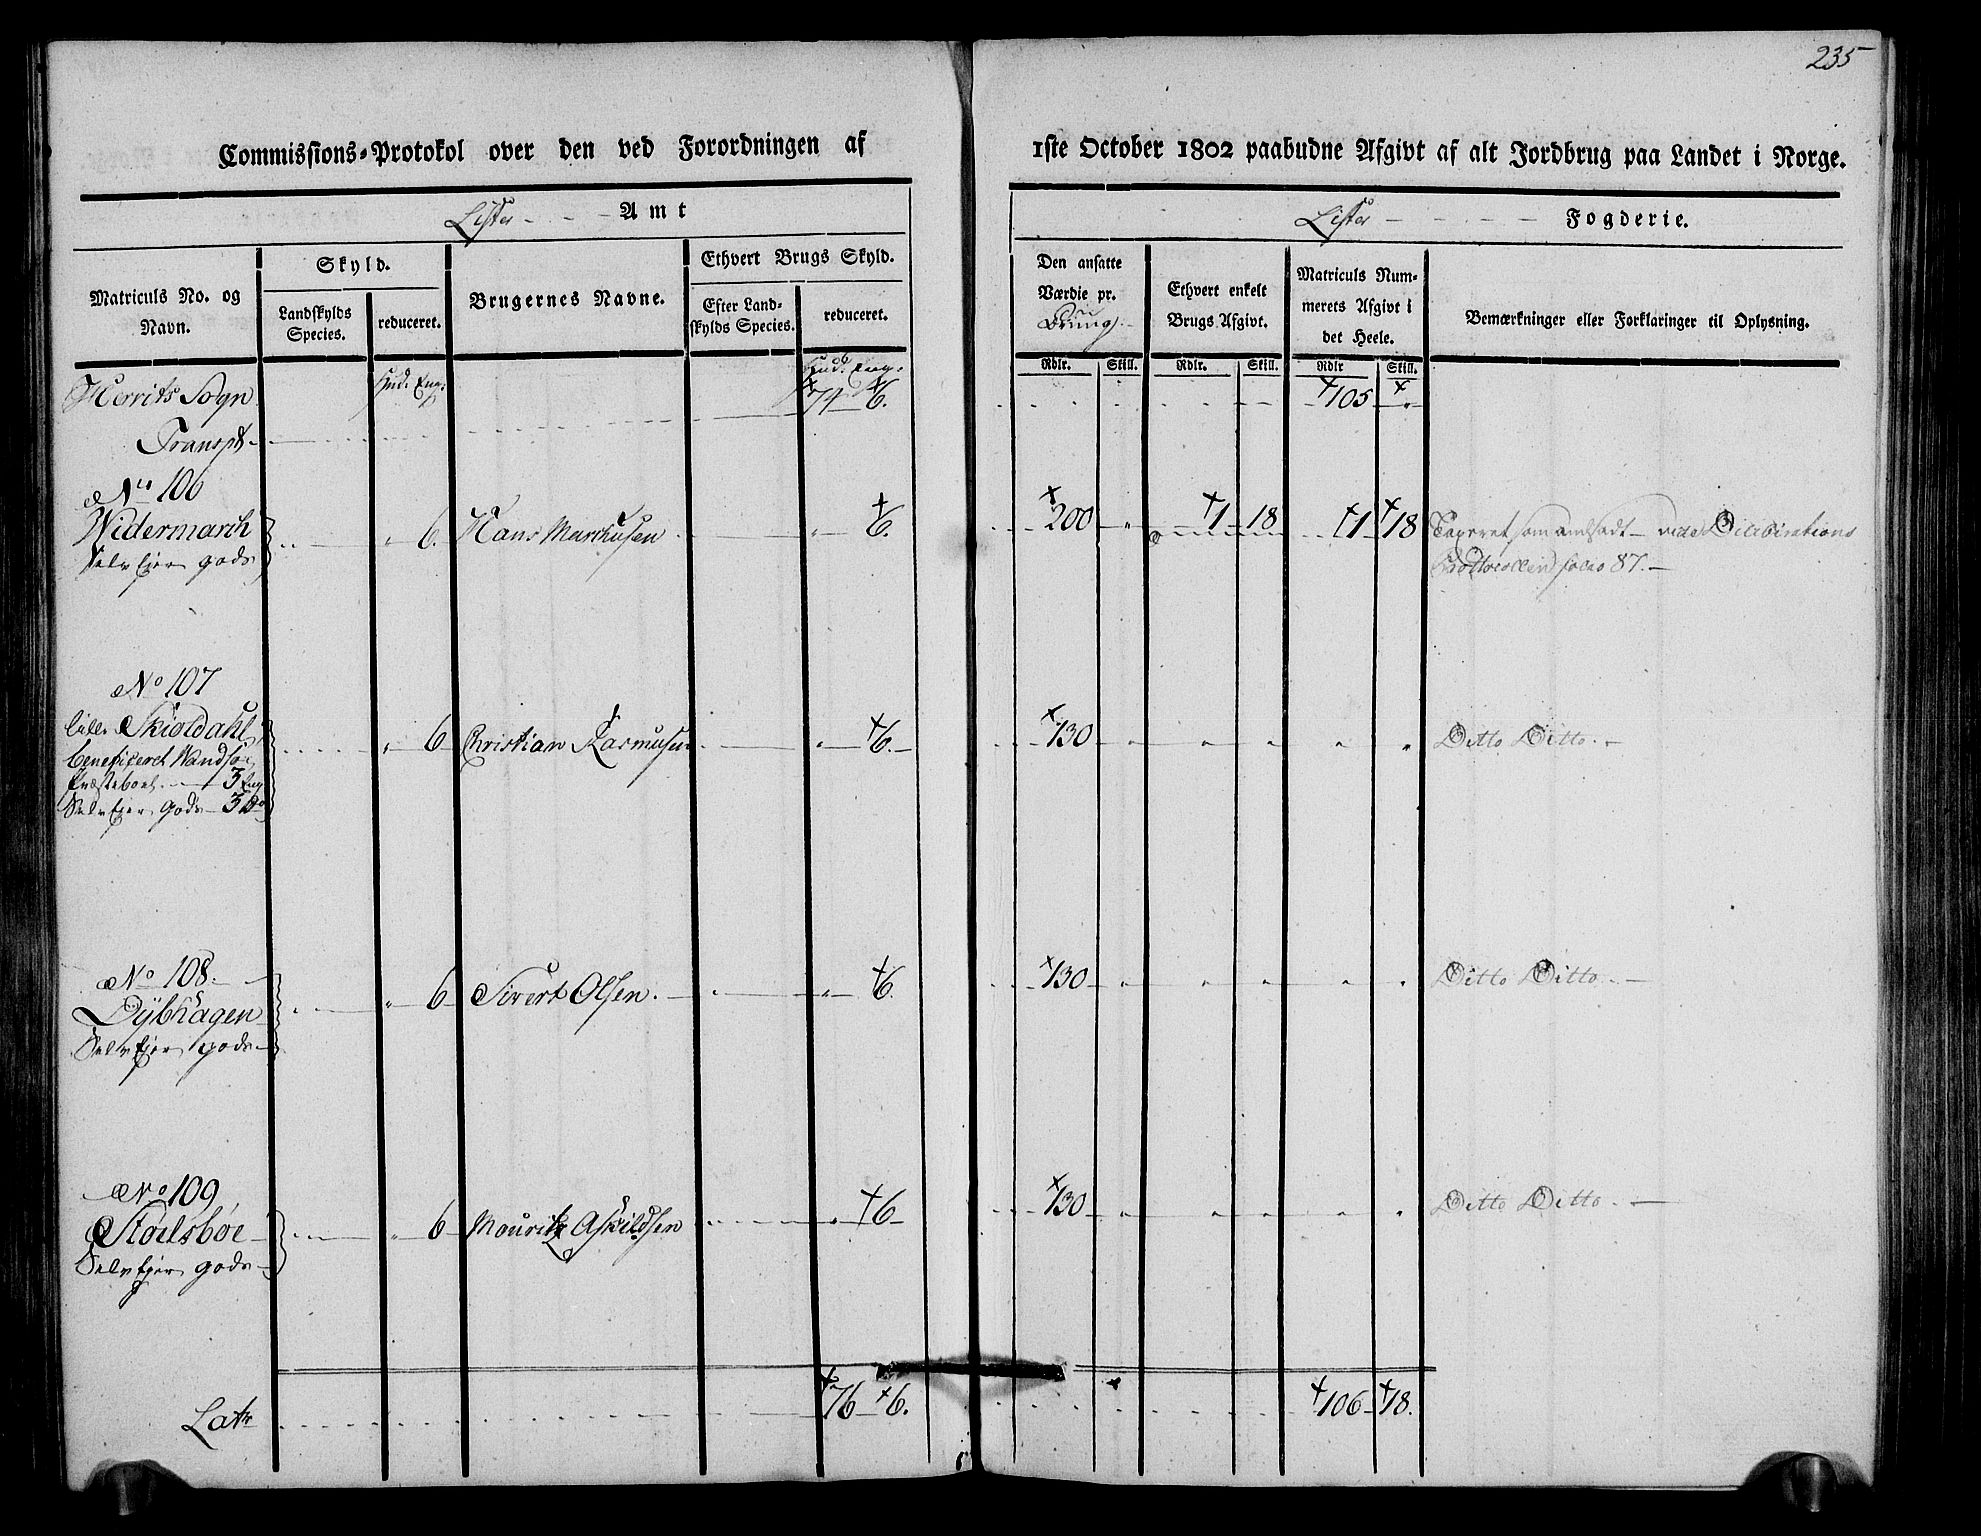 235
Commissions-Protokol over den ved Forordningen af
1ste October 1802 paabudne Afgivt af alt Jordbrug paa Landet i Norge.
Lister Amt
Lister Fogderie.
Matriculs No. og Navn.
Skyld.
Landskylds Species.
reduceret.
Brugernes Navne.
Ethvert Brugs Skyld.
Efter Landskylds Species.
reduceret.
Den ansatte Værdie pr.
Ethvert enkelt Brugs Afgivt.
Matriculs Nummerets Afgivt i det Heele.
Bemærkninger eller Forklaringer til Oplysning.
Rdlr. Skill. Rdlr. Skill. Rdlr Skill.
Hud. Eng. Hud. Eng.
Herrits Sogn
Transpt 74 6. 105 "
No 106
Widermarch " 6. Hans Marchusen " 6. 200 " 1 18 1 18 Taxeret som Andsadt vide Deliberations
Selveier gods Protocollen folio 87.
No 107
Lille Skioldahl " 6 Christian Rasmusen " 6. 130 " " " " " Ditto Ditto
beneficeret Wandsøe
Præsteboel 3 Eng
Selveier gods 3 Do
No 108.
Dybhagen " 6 Sivert Olsen. " 6. 130 " " " " " Ditto Ditto
Selveier gods
No 109
Stoelsbøe " 6 Mouritz Askildsen " 6 130 " " " " " Ditto Ditto
Selveier gods
Latr 76 6. 106 18.